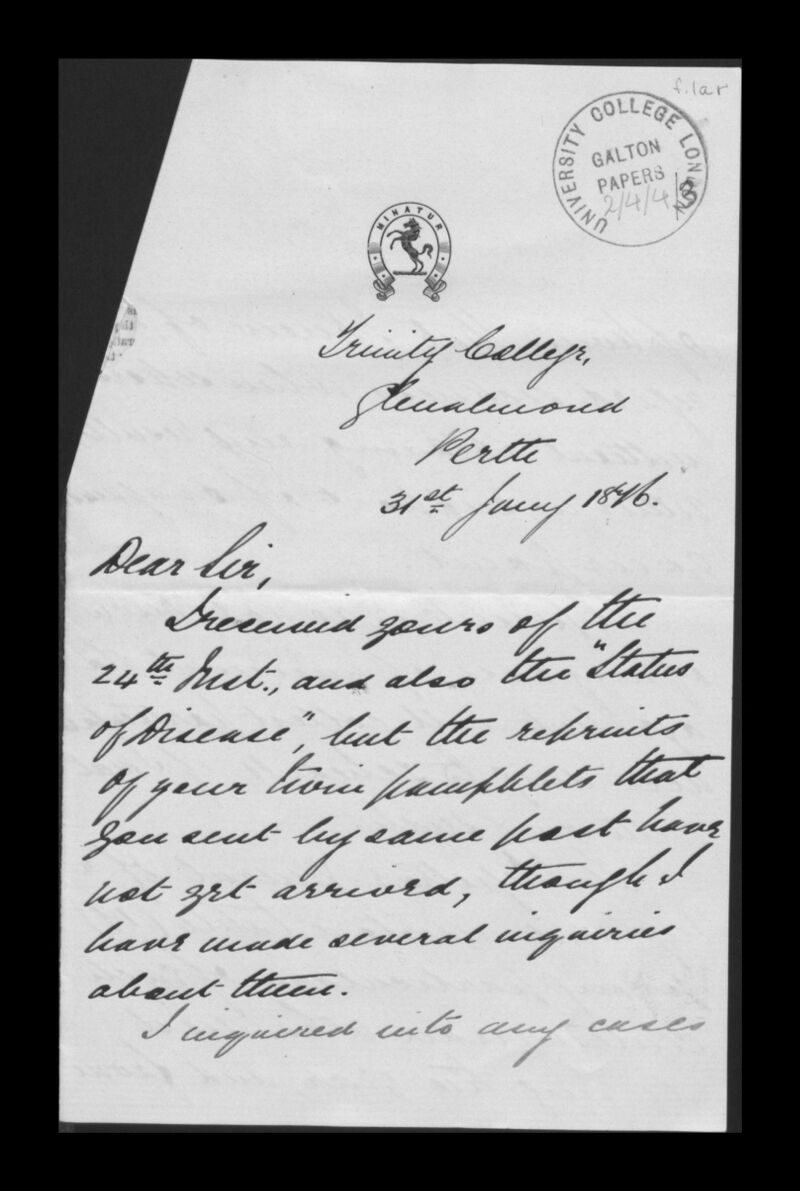 f.1ar
UNIVERSITY COLLEGE LONDON
GALTON
PAPERS
2/4/4/8
MINATUR
Trinity College,
Glenalmond
Perth
31st Jany 1876.
Dear Sir,
I received yours of the
24th Inst., and also the "Status
of Disease", but the reprints
of your twin pamphlets that
you sent by same post have
not yet arrived, though I
have made several inquiries
about them.
I inquired into any cases